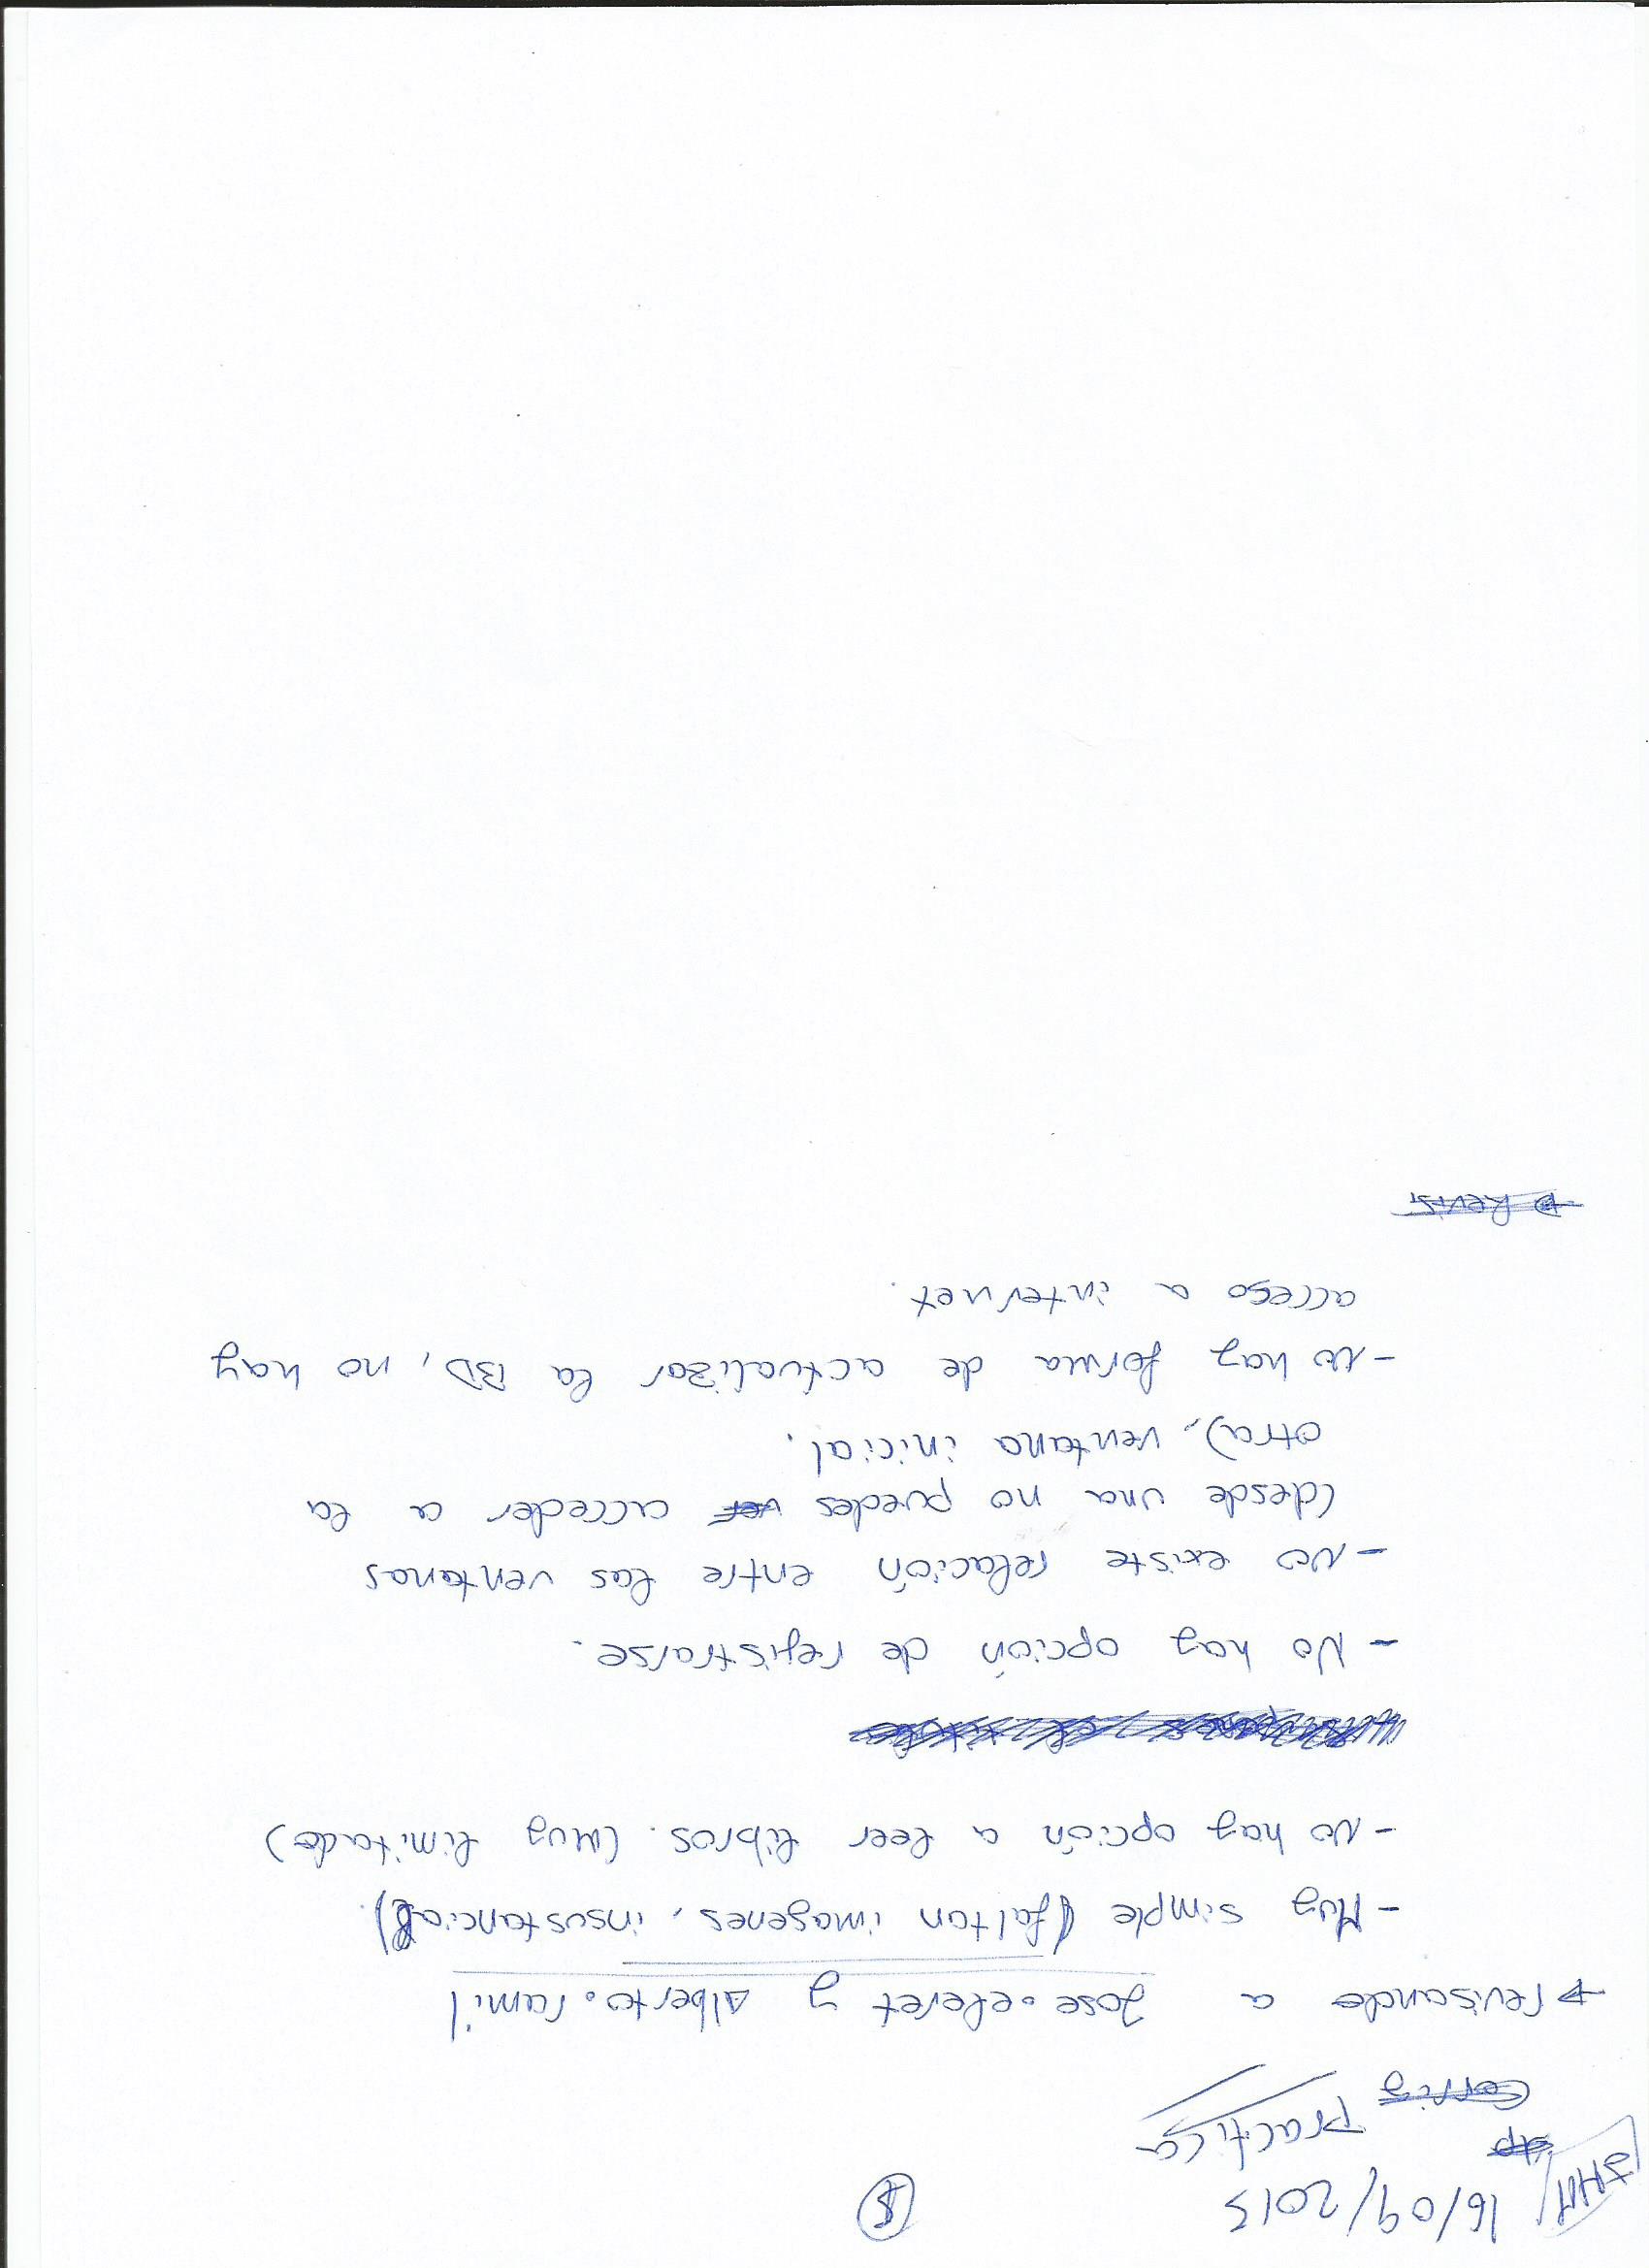 16/09/2015
Practica
revisando a Jose.eleret y Alberto.ramil
- Muy simple (faltan imagenes, insustancial).
- No hay opción a leer libros. (muy limitado)
- No hay opción de registrarse.
- No existe relación entre las ventanas
(desde una no puedes acceder a la
otra), ventana inicial.
- No hay forma de actualizar la BD, no hay
acceso a internet.